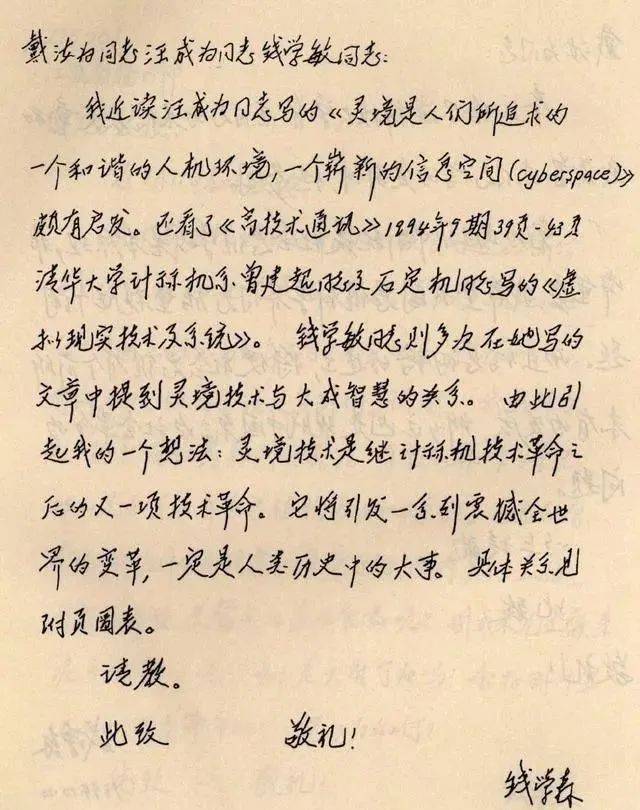 戴汝为同志汪成为同志钱学敏同志：
我近读汪成为同志写的《灵境是人们所追求的
一个和谐的人机环境，一个崭新的信息空间(cyberspace)》
颇有启发。还看了《高技术通讯》1994年9期39页-43页
清华大学计祘机系曾建超同志及石定机同志写的《虚
拟现实技术及系统》。钱学敏同志则多次在她写的
文章中提到灵境技术与大成智慧的关系。由此引
起我的一个想法：灵境技术是继计祘机技术革命之
后的又一项技术革命。它将引发一系列震撼全世
界的变革，一定是人类历史中的大事。具体关系见
附页图表。
请教。
此致 敬礼！
钱学森